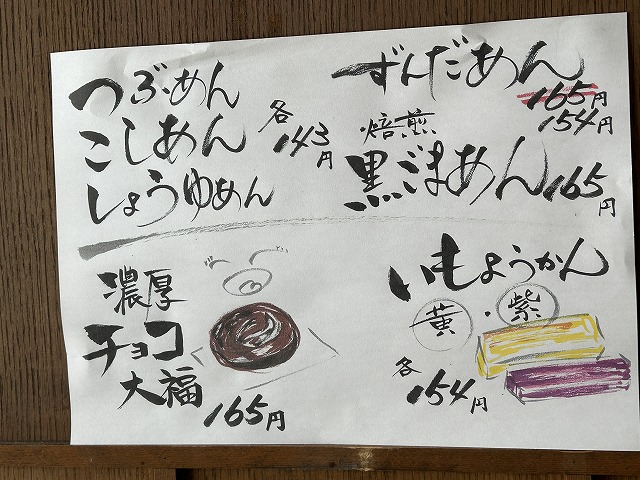 つぶあん
こしあん
しょうゆあん
各143円
ずんだあん
165円
154円
焙煎
黒ごまあん165円
濃厚
チョコ
大福
165円
いもようかん
黄・紫
各154円